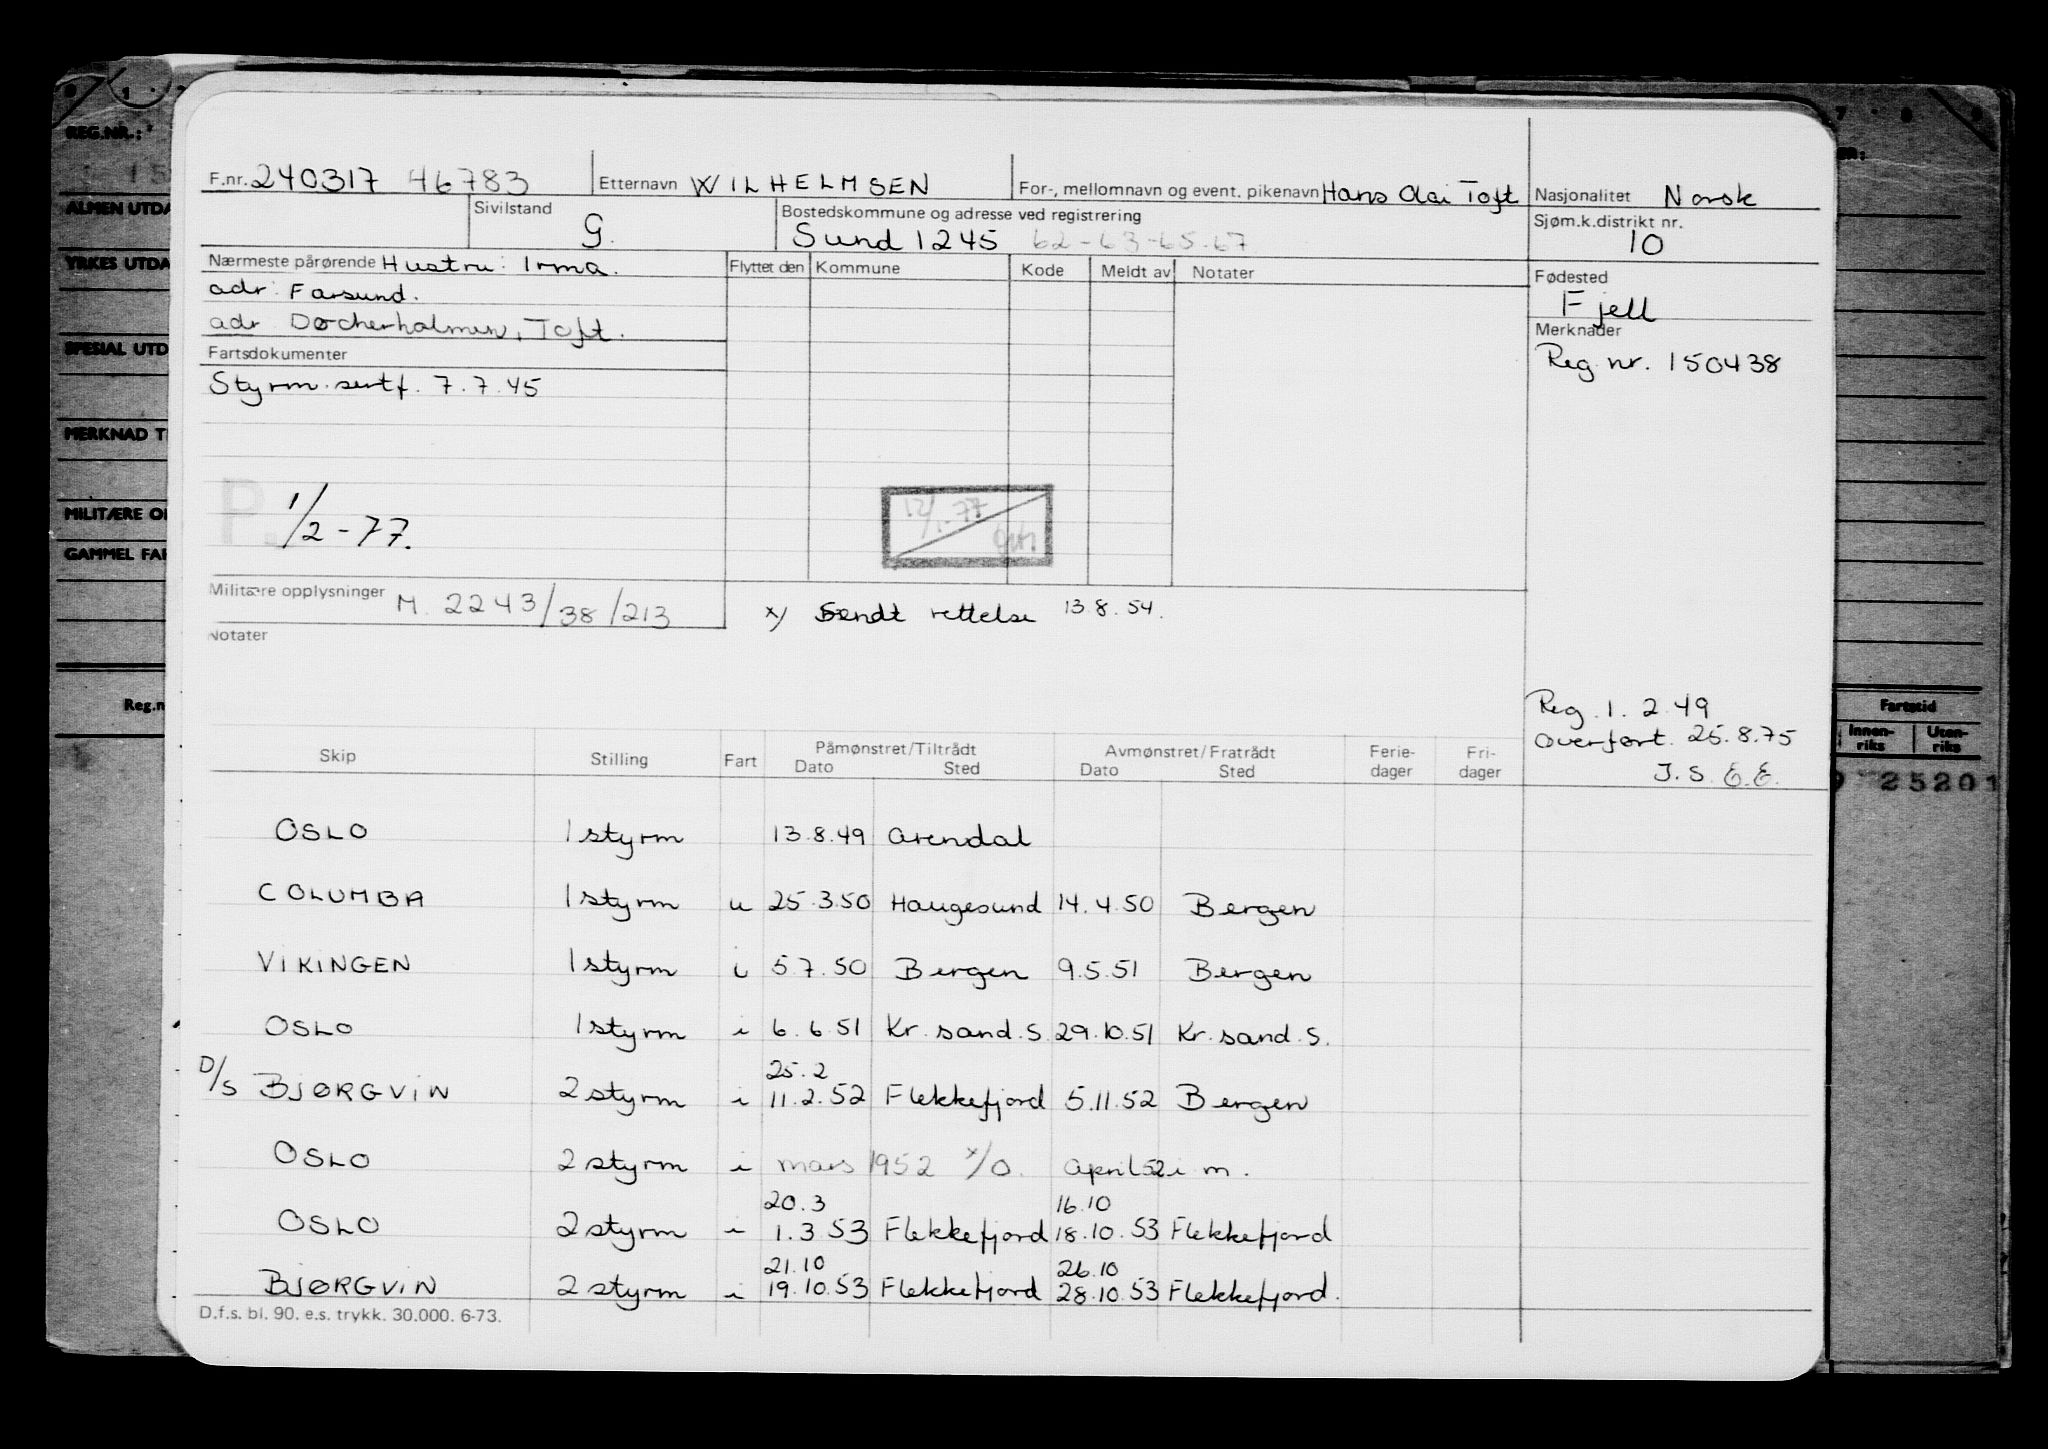 REG.NR.:
ALMEN UTDA
YRKES UTDA
SPESIAL UTD
MERKNAD T
MILITÆRE O
GAMMEL FA
Reg.n
F.nr. 240317 46783 Etternavn WILHELMSEN For-, mellomnavn og event. pikenavn Hans Toft Nasjonalitet Norsk
Sivilstand G. Bostedskommune og adresse ved registrering Sund 1245 62-63-65-67 Sjøm.k.distrikt nr. 10
Nærmeste pårørende Hustru: Irma. Flyttet den Kommune Kode Meldt av Notater Fødested Fjell
adr: Farsund.
adr Toft.
Merknader
Reg. nr. 150438
Fartsdokumenter
Styrm.sertf. 7.7.45
P. 1/2-77.
12/1.77
Militære opplysninger M. 2243/38/213
x) Sendt rettelse 13.8.54.
Notater
Reg. 1. 2.49
Overført. 25.8.75
J.S. E.E.
Skip Stilling Fart Påmønstret/Tiltrådt Dato Sted Avmønstret/Fratrådt Dato Sted Ferie-dager Fri-dager
OSLO 1 styrm 13.8.49 Arendal
COLUMBA 1 styrm u 25.3.50 Haugesund 14.4.50 Bergen
VIKINGEN 1 styrm i 5.7.50 Bergen 9.5.51 Bergen
OSLO 1 styrm i 6.6.51 Kr.sand.S 29.10.51 Kr.sand.S.
25.2
D/S BJØRGVIN 2 styrm i 11.2.52 Flekkefjord 5.11.52 Bergen
OSLO 2 styrm i mars 1952 x/O. April 52 i m.
20.3 16.10
OSLO 2 styrm i 1.3.53 Flekkefjord 18.10.53 Flekkefjord
21.10 26.10
BJØRGVIN 2 styrm i 19.10.53 Flekkefjord 28.10.53 Flekkefjord.
D.f.s. bl. 90. e.s. trykk. 30.000. 6-73.
Fartstid
Innen-riks Utan-riks
25201